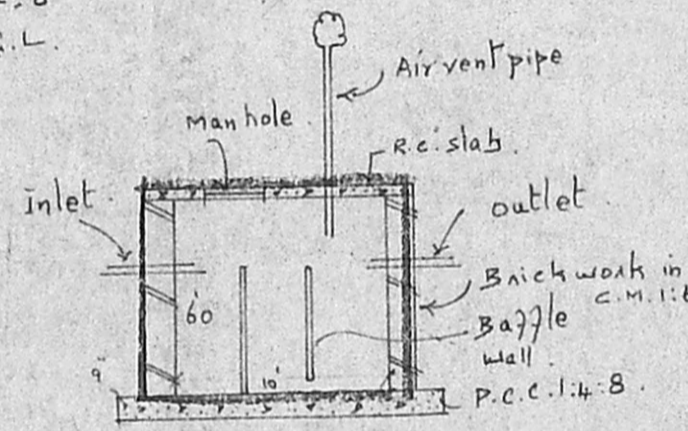 R.L.
Air vent pipe
Manhole
R.C. slab.
Inlet
outlet
Brick work in
C.M. 1:6
6'0
Baffle
wall.
9"
10'
P.C.C. 1:4:8.